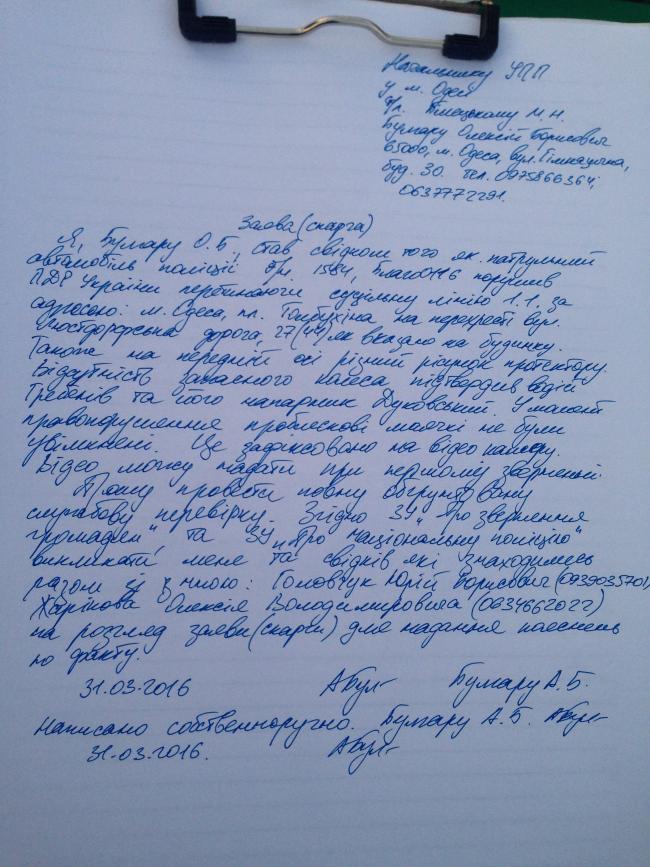 Начальнику УПП
у м. Одесі
Білецькому М. Н.
Бумару Олексій Борисович
65000, м. Одеса, вул. Гімназична,
буд. 30. тел. 0975866364;
0637772291.
Заява (скарга)
Я, Бумару О. Б, став свідком того як патрульний
автомобіль поліції 1584, Благо0116 порушив
ПДР України перетинаючи суцільну лінію 1.1. за
адресою: м. Одеса, пл. Толбухіна на перехресті вул.
Люстдорфська дорога, 27 як вказано на будинку.
Також на передній осі різний рісунок протектору.
Відсутність запасного колеса підтвердив водій
Гребенів та його напарник Дуковський. У момент
правопорушення проблескові маячкі не були
увімкнені. Це задіксовано на відео камеру.
Відео можу надати при першому зверненні.
Прошу провести повну обгрунтовану
службову перевірку. Згідно ЗУ „Про звернення
громадян", та ЗУ „Про національну поліцію"
викликати мене та свідків які знаходились
разом із мною: Головчук Юрій Борисович (0939035701)
Харікова Олексія Володимировича (0634662022)
на розгляд заяви (скарги) для надання пояснень
по факту.
31.03.2016 Бумару А. Б.
Написано собственноручно. Бумару А. Б.
31.03.2016.